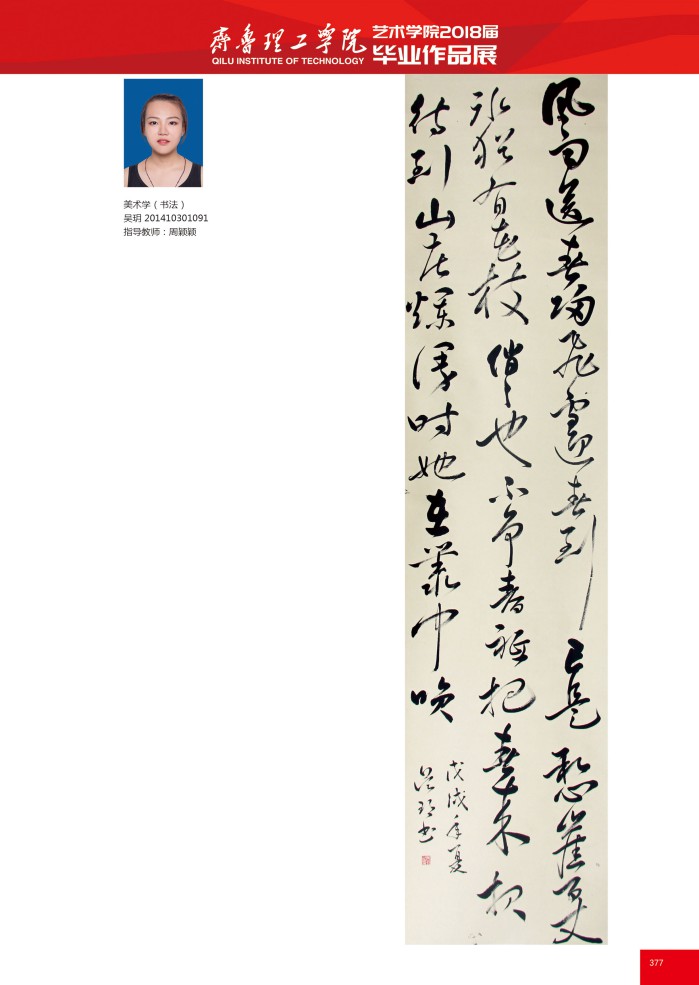 齐鲁理工学院
QILU INSTITUTE OF TECHNOLOGY
艺术学院2018届
毕业作品展
美术学（书法）
吴玥 201410301091
指导教师：周颖颖
风雨送春归飞雪迎春到已是悬崖百丈
冰犹有花枝俏〻也不争春祇把春来报
待到山花烂漫时她在丛中咲
戊戌年夏
吴玥书
377